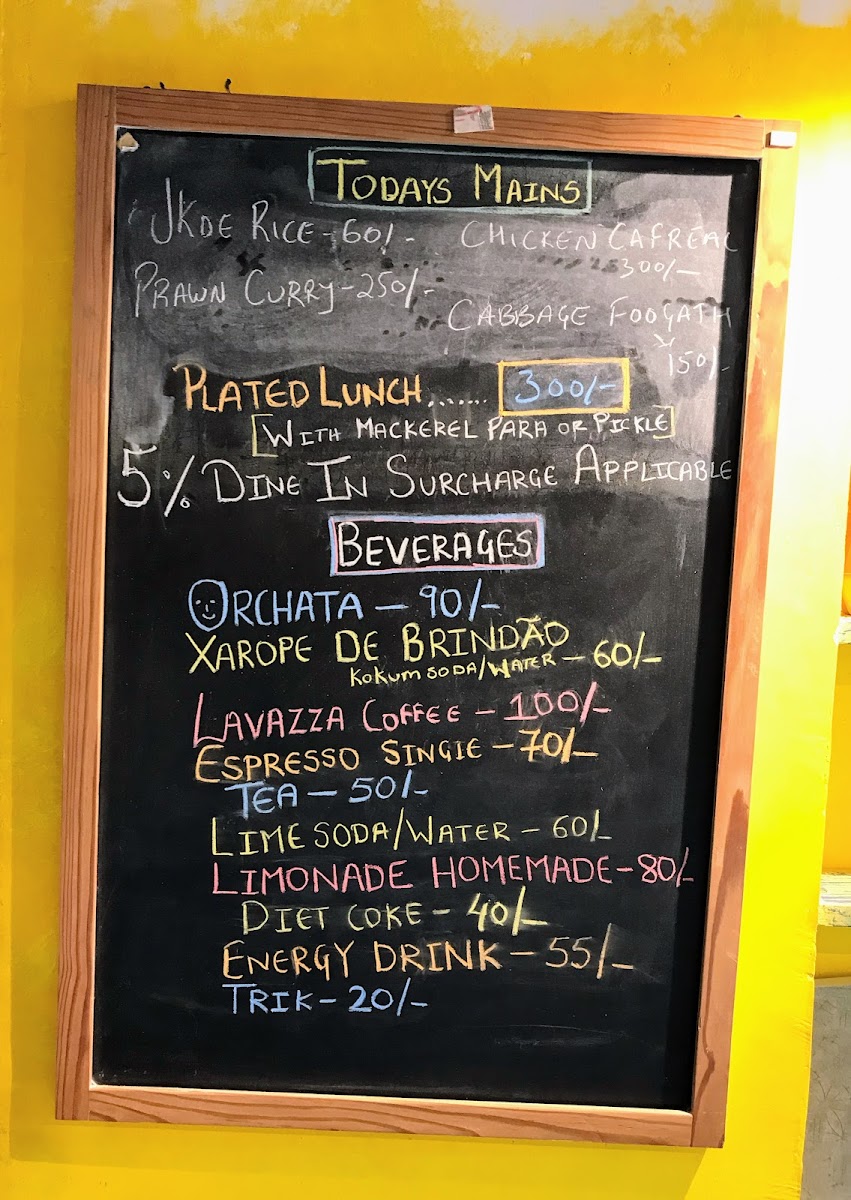 TODAYS MAINS
JKDE RICE - 60/-
PRAWN CURRY - 250/-
CHICKEN CAFREAL
300/-
CABBAGE FOOGATH
150/-
PLATED LUNCH....... 300/-
[WITH MACKEREL PARA OR PICKLE]
5% DINE IN SURCHARGE APPLICABLE
BEVERAGES
ORCHATA - 90/-
XAROPE DE BRINDÃO
KOKUM SODA/WATER - 60/-
LAVAZZA COFFEE - 100/-
ESPRESSO SINGLE - 70/-
TEA - 50/-
LIME SODA/WATER - 60/-
LIMONADE HOMEMADE - 80/-
DIET COKE - 40/-
ENERGY DRINK - 55/-
TRIK - 20/-